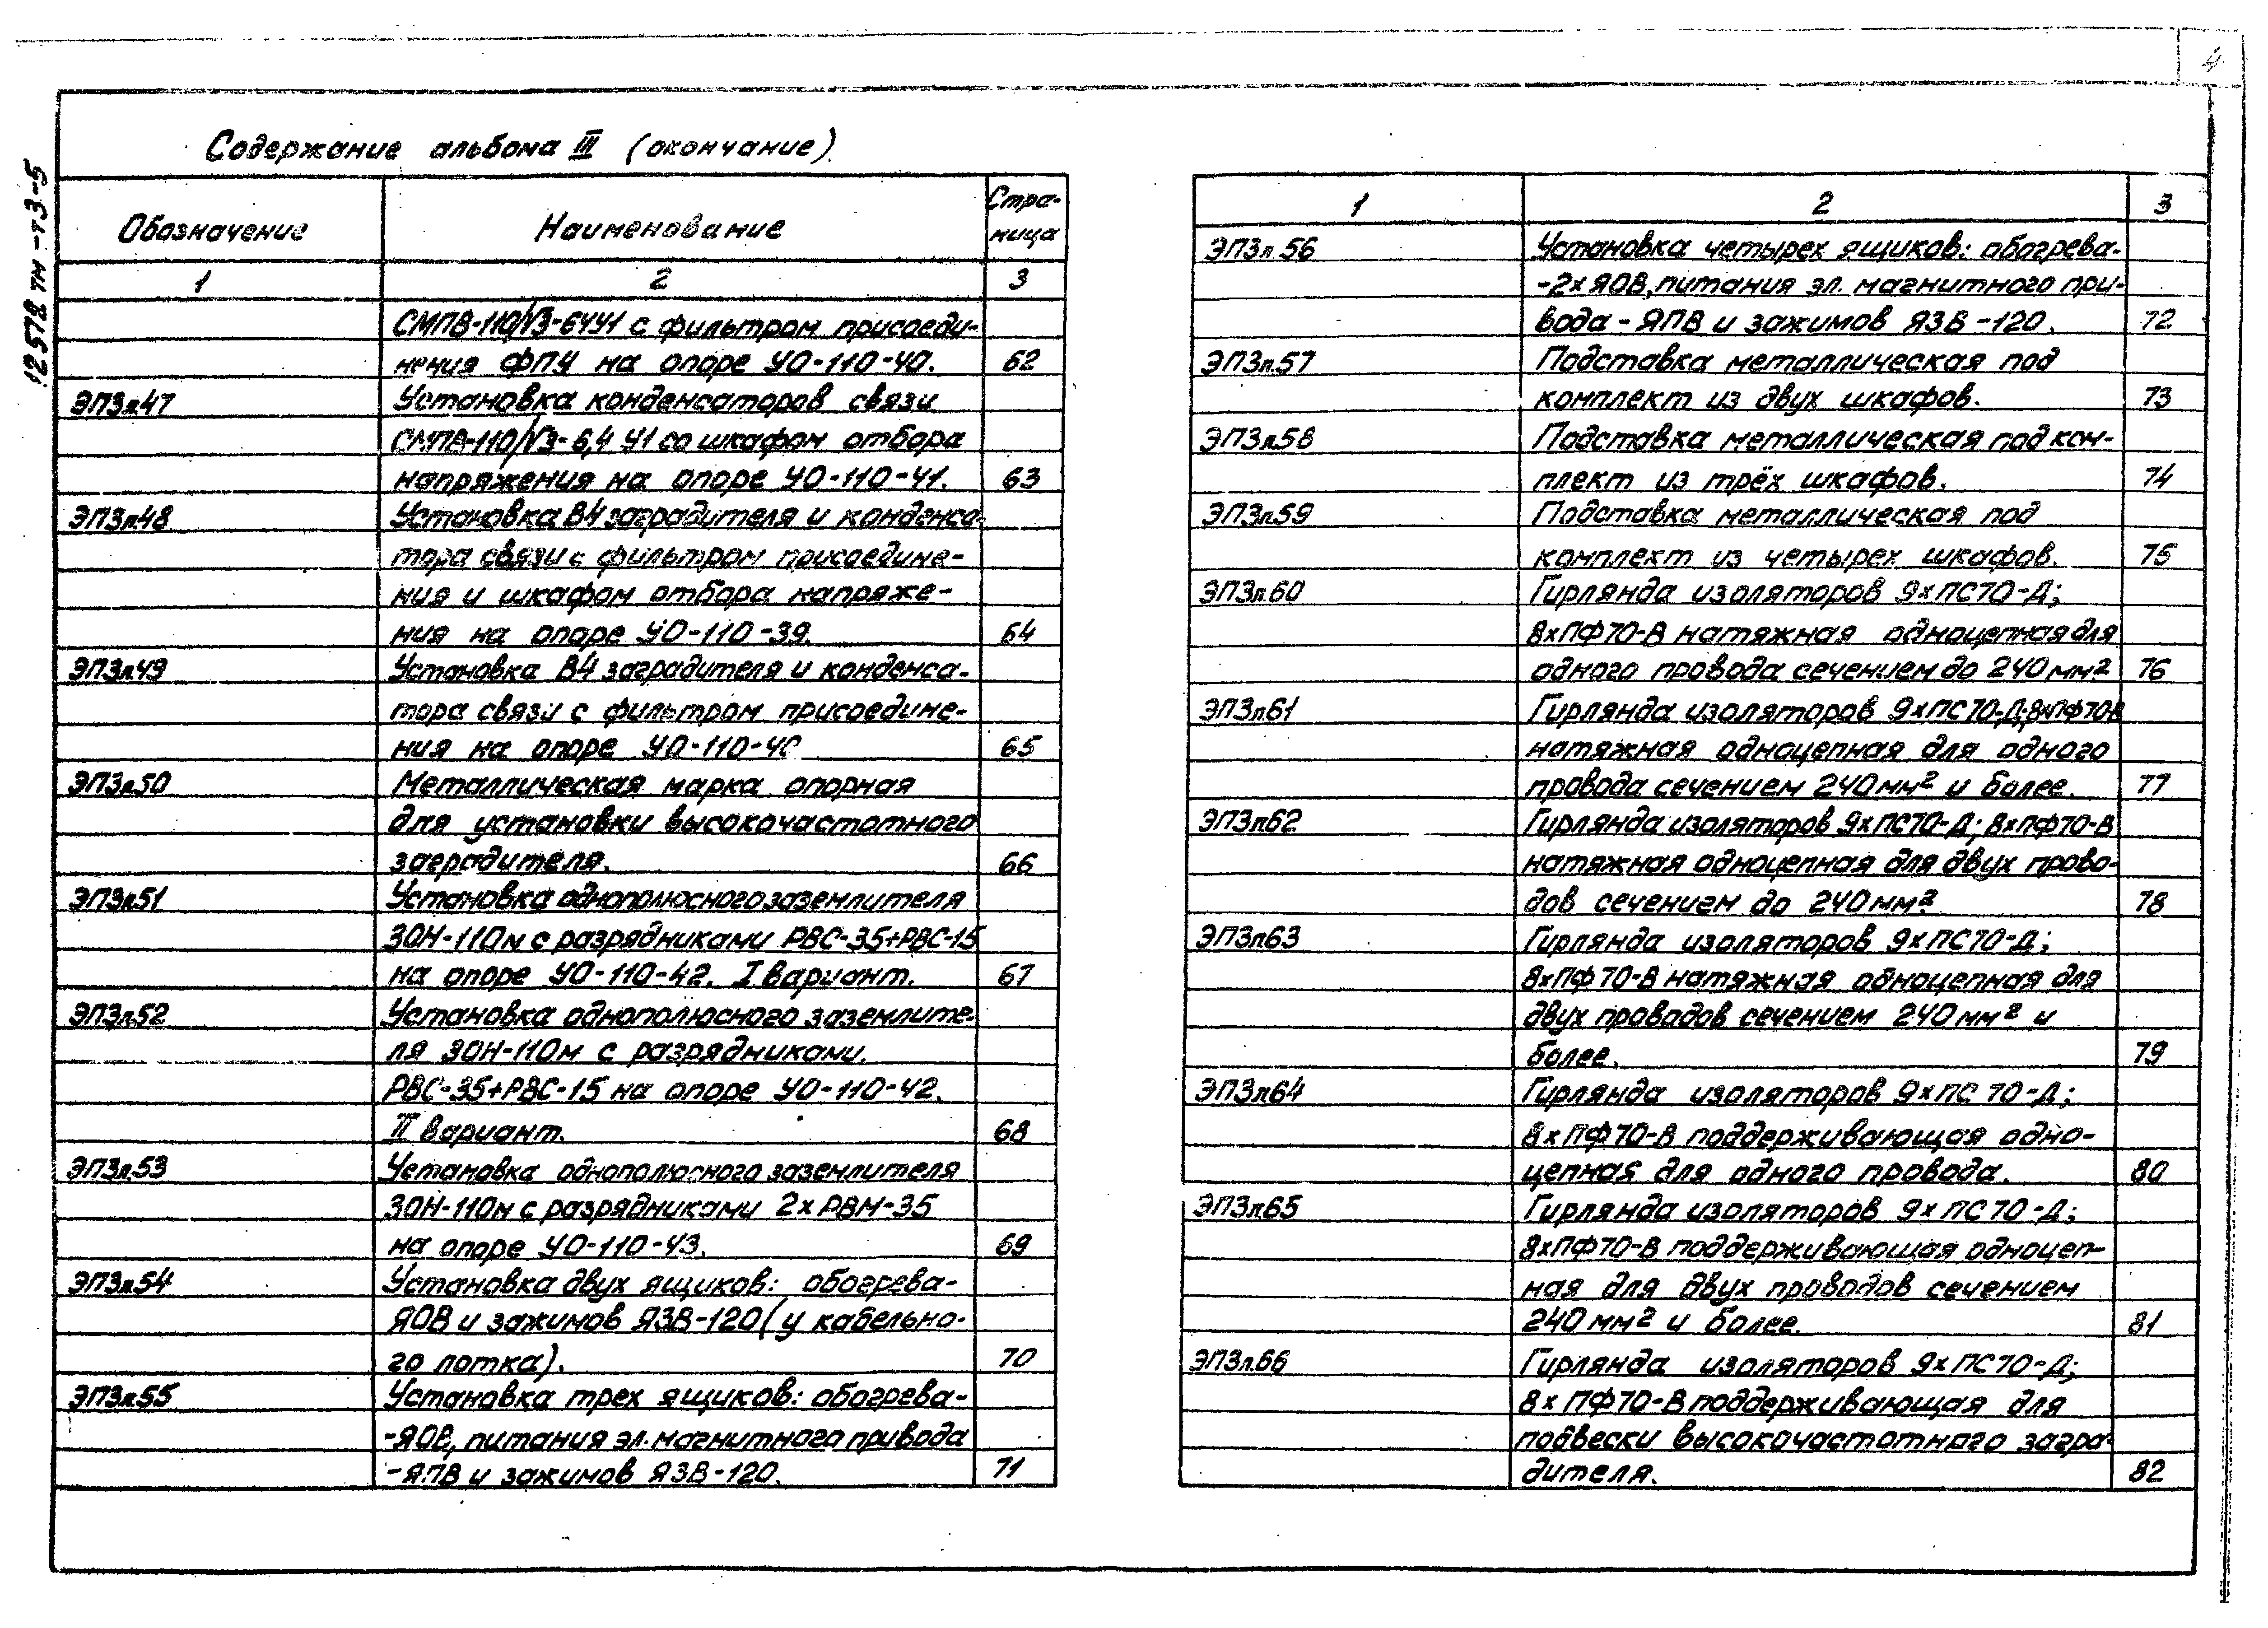 4
12578 тм-т3-5
Содержание альбома III (окончание)
Обозначение
Наименование
Стра-
ница
1 2 3
СМПВ-110/√3-6УУ1 с фильтром присоеди-
нения ФПУ на опоре УО-110-40. 62
ЭП3л47 Установка конденсаторов связи
СМПВ-110/√3-6,4 У1 со шкафом отбора
напряжения на опоре УО-110-41. 63
ЭП3л48 Установка ВЧ заградителя и конденса-
тора связи с фильтром присоедине-
ния и шкафом отбора напряже-
ния на опоре УО-110-39. 64
ЭП3л49 Установка ВЧ заградителя и конденса-
тора связи с фильтром присоедине-
ния на опоре УО-110-40 65
ЭП3л50 Металлическая марка опорная
для установки высокочастотного
заградителя. 66
ЭП3л51 Установка однополюсного заземлителя
ЗОН-110м с разрядниками РВС-35+РВС-15
на опоре УО-110-42. I вариант. 67
ЭП3л52 Установка однополюсного заземлите-
ля ЗОН-110м с разрядниками.
РВС-35+РВС-15 на опоре УО-110-42.
II вариант. 68
ЭП3л.53 Установка однополюсного заземлителя
ЗОН-110м с разрядниками 2хРВМ-35
на опоре УО-110-43. 69
ЭП3л54 Установка двух ящиков: обогрева-
ЯОВ и зажимов ЯЗВ-120 (у кабельно-
го лотка). 70
ЭП3л.55 Установка трех ящиков: обогрева-
-ЯОВ, питания эл. магнитного привода
-ЯПВ и зажимов ЯЗВ-120. 71
1 2 3
ЭП3л 56 Установка четырех ящиков: обогрева-
-2хЯОВ, питания эл. магнитного при-
вода-ЯПВ и зажимов ЯЗВ-120. 72
ЭП3л.57 Подставка металлическая под
комплект из двух шкафов. 73
ЭП3л.58 Подставка металлическая под ком-
плект из трёх шкафов. 74
ЭП3л.59 Подставка металлическая под
комплект из четырех шкафов. 75
ЭП3л.60 Гирлянда изоляторов 9хПС70-Д;
8хПФ70-В натяжная одноцепная для
одного провода сечением до 240 мм² 76
ЭП3л61 Гирлянда изоляторов 9хПС70-Д;8хПФ70-В
натяжная одноцепная для одного
провода сечением 240 мм² и более. 77
ЭП3л62 Гирлянда изоляторов 9хПС70-Д; 8хПФ70-В
натяжная одноцепная для двух прово-
дов сечением до 240 мм². 78
ЭП3л63 Гирлянда изоляторов 9хПС70-Д;
8хПФ70-В натяжная одноцепная для
двух проводов сечением 240 мм² и
более. 79
ЭП3л64 Гирлянда изоляторов 9хПС 70-Д;
8хПФ70-В поддерживающая одно-
цепная для одного провода. 80
ЭП3л65 Гирлянда изоляторов 9хПС70-Д;
8хПФ70-В поддерживающая одноцеп-
ная для двух проводов сечением
240 мм² и более. 81
ЭП3л.66 Гирлянда изоляторов 9хПС70-Д;
8хПФ70-В поддерживающая для
подвески высокочастотного загра-
дителя. 82